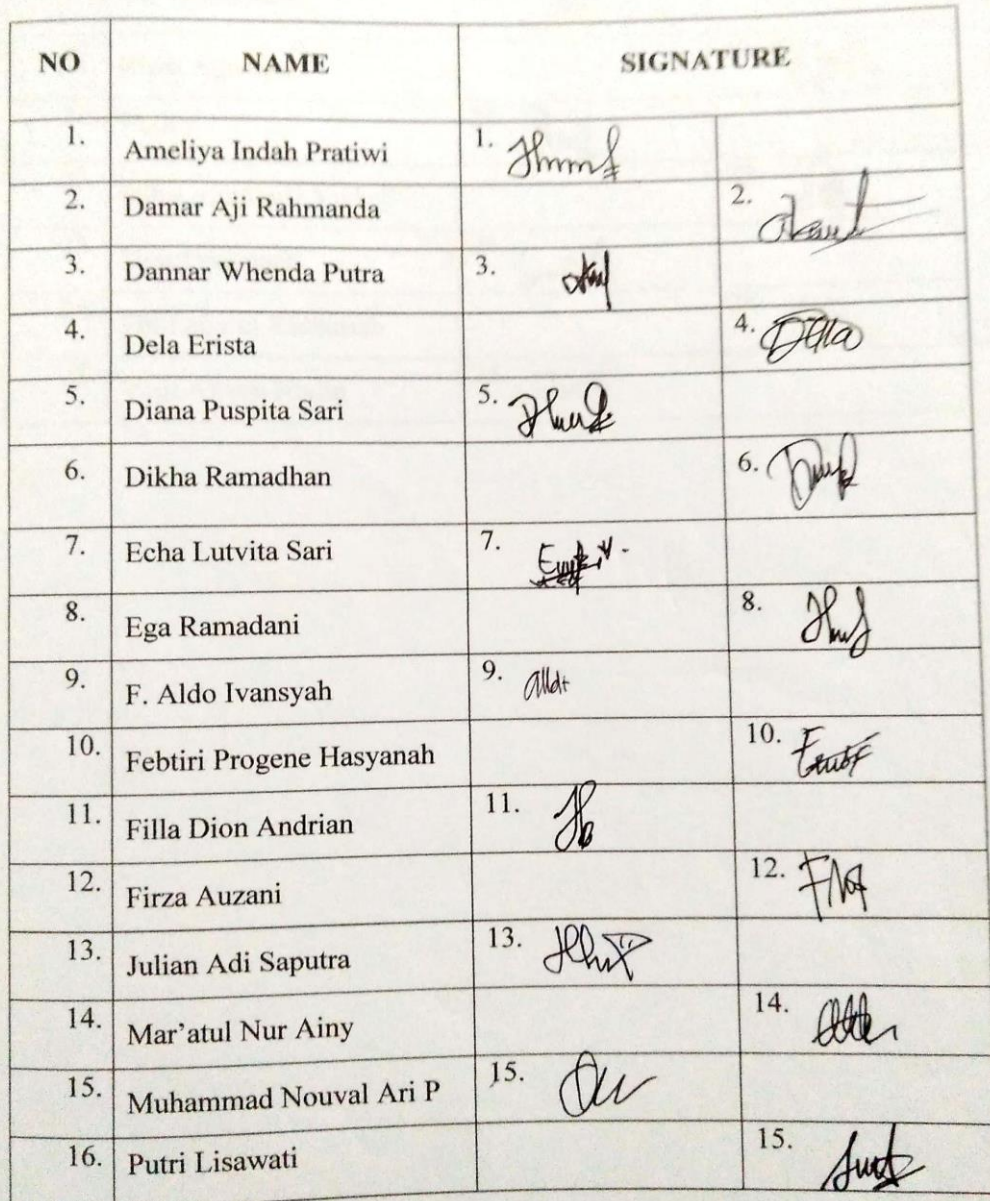 NO NAME SIGNATURE
1. Ameliya Indah Pratiwi 1.
2. Damar Aji Rahmanda 2.
3. Dannar Whenda Putra 3.
4. Dela Erista 4. Della
5. Diana Puspita Sari 5.
6. Dikha Ramadhan 6.
7. Echa Lutvita Sari 7.
8. Ega Ramadani 8.
9. F. Aldo Ivansyah 9.
10. Febtiri Progene Hasyanah 10.
11. Filla Dion Andrian 11.
12. Firza Auzani 12.
13. Julian Adi Saputra 13.
14. Mar'atul Nur Ainy 14.
15. Muhammad Nouval Ari P 15.
16. Putri Lisawati 15.